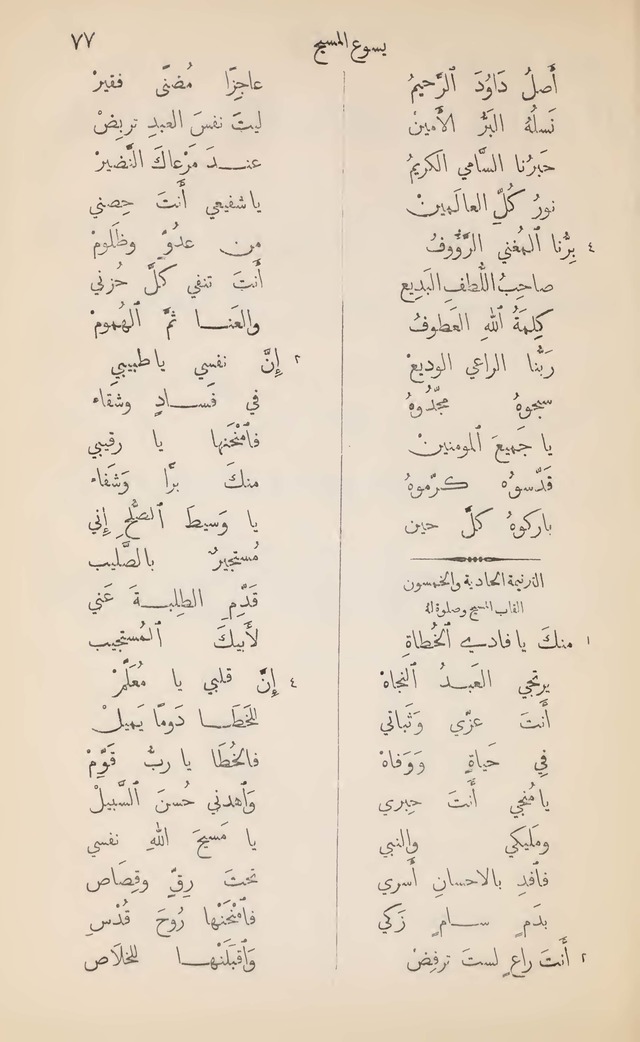 يسوع المسيح
٧٧
أَصلُ دَاوُدَ ٱلرَّحيمُ
نَسلُهُ البَرُّ الأَمينْ
حَبرُنا السَّامي الكريمُ
نورُ كُلِّ العالَمينْ
٤ بِرُّنا ٱلمُغني الرَّؤُوفُ
صاحبُ اللُّطفِ البَديع
كِلمَةُ ٱللهِ العَطوفُ
رَبُّنا الراعي الوديعْ
سبحوهُ مجّدُوهُ
يا جَميعَ ٱلمومنينْ
قَدّسوُه كرّموهُ
باركوهُ كلَّ حين
الترنيمة الحادية والخمسون
القاب المسيح وصلوة له
١ منكَ يا فادي ٱلخُطاةِ
يرتجي العَبدُ ٱلنجاهْ
أَنتَ عزّي وَثَباتي
فِي حَياةٍ وَوَفاهْ
يا مُنجي أَنتَ حِبري
ومَليكي والنبي
فٱفدِ بالاحسانِ أسري
بدَمٍ سامٍ زَكي
٢ أَنتَ راعٍ لستَ ترفِضْ
عاجِزًا مُضنًى فقيرْ
ليتَ نفسَ العبدِ تربِضْ
عندَ مَرْعاكَ النَّضيرْ
يا شفيعي أَنتَ حِصني
من عدُوٍّ وظَلومْ
أَنتَ تنفي كلَّ حُزني
والعَنا ثمَّ ٱلهُمومْ
٣ إِنَّ نفسِي يا طبيبي
في فَسادٍ وشقاء
فٱمْنَحَنها يا رقيبي
منكَ برًّا وَشَفاء
يا وَسيطَ ٱلصُّلحِ إِني
مُستجيرٌ بالصَّليب
قَدِّمِ الطلِبةَ عَني
لأَبيكَ ٱلمُستجيب
٤ إِنَّ قلبي يا مُعَلّمْ
للخَطا دَومًا يَميلْ
فالخُطَا يا ربُّ قَوِّمْ
وَٱهدني حُسنَ ٱلسَّبيلْ
يا مَسيحَ اللهِ نفسي
تحتَ رِقٍّ وقِصَاص
فٱمْنَحَنْها رُوحَ قُدْسٍ
وَٱقبَلَنْها للخلَاص